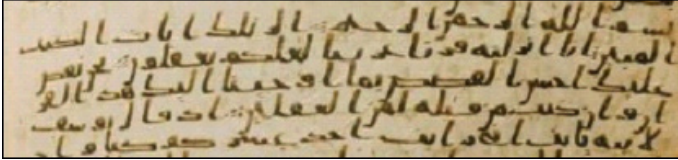 بسم الله الرحمن الرحيم الر تلك ايات الكتب
المبين انا انزلنه قرنا عربيا لعلكم تعقلون نحن نقص
عليك احسن القصص بما اوحينا اليك هذا القر
ان وان كنت من قبله لمن الغفلين اذ قال يوسف
لابيه يابت انى رايت احد عشر كوكبا وا